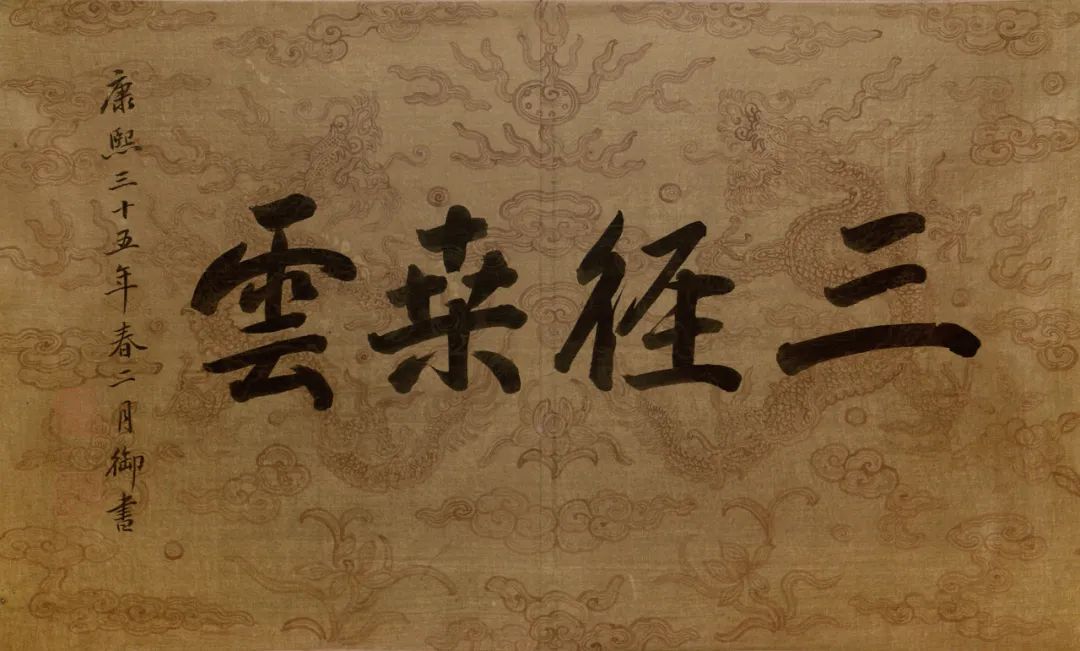 三径桒雲
康熙三十五年春二月御書